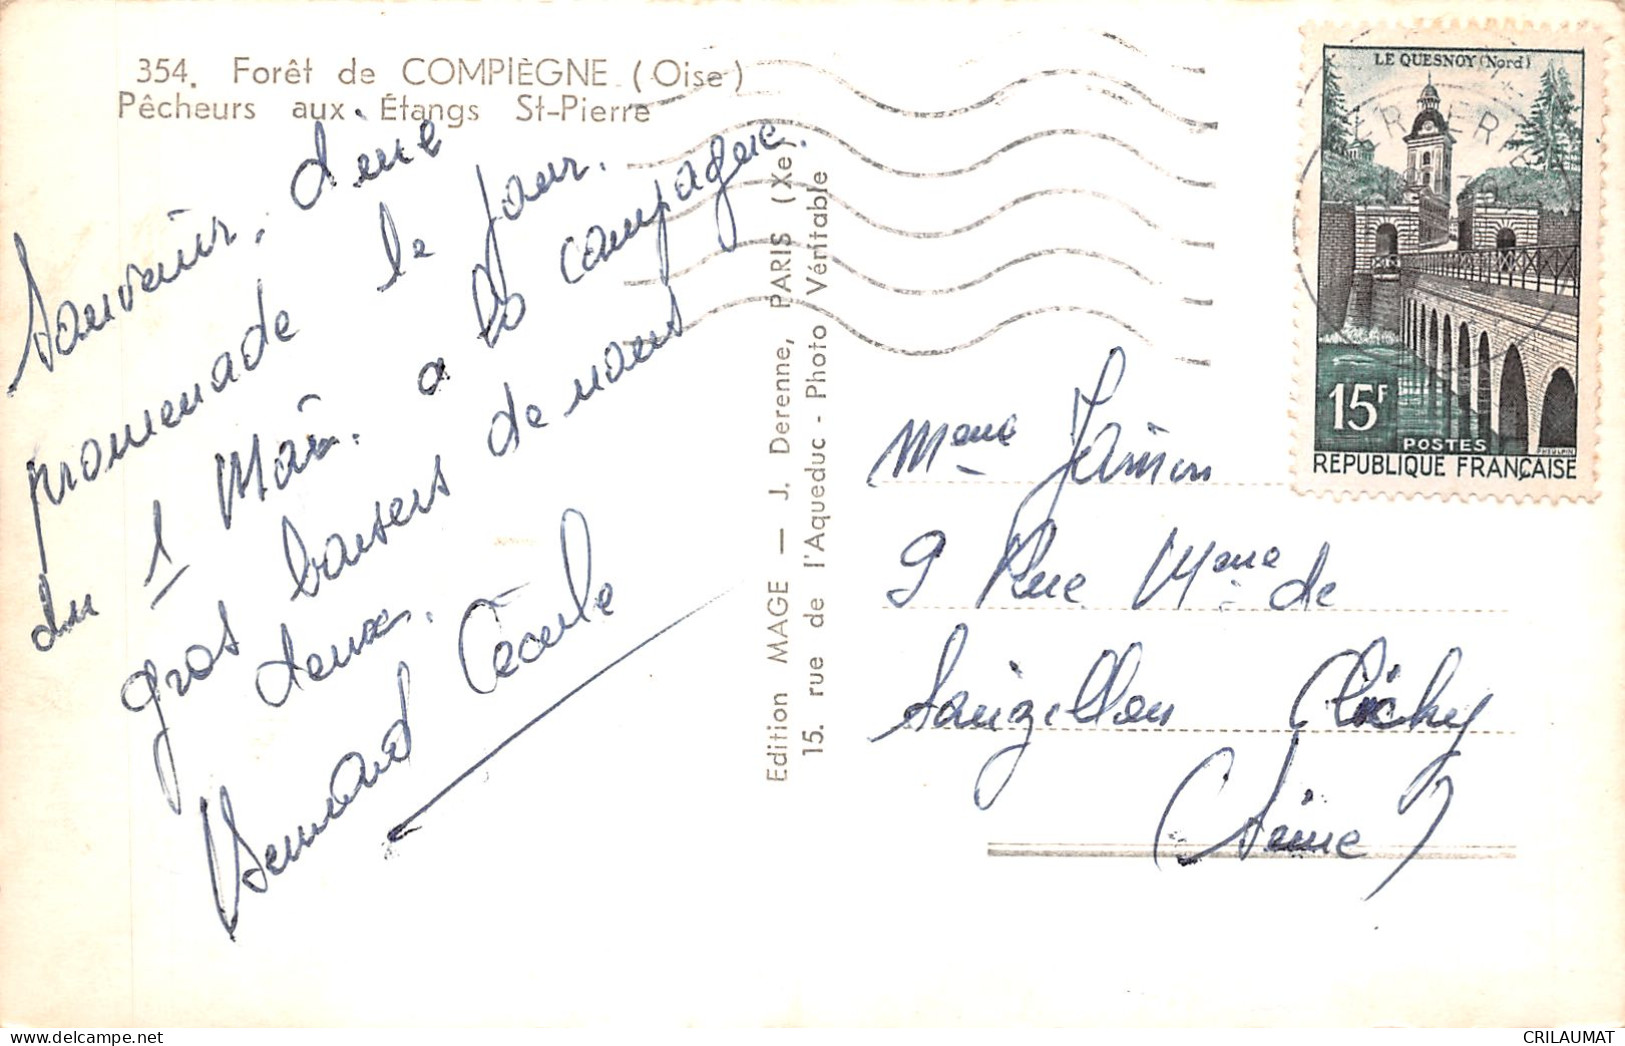 354. Forêt de COMPIÈGNE (Oise)
Pêcheurs aux Étangs St-Pierre
Souvenir, d'une
promenade le jour.
du 1 Mai. a la campagne.
gros baisers de nous
deux.
Bernard Cecile
Edition MAGE — J. Derenne, PARIS (Xe)
15. rue de l'Aqueduc - Photo Véritable
LE QUESNOY (Nord)
15F
POSTES
RÉPUBLIQUE FRANÇAISE
Mme Jamin
9 Rue Mme de
Sanzillon Clichy
(Seine)
CRILAUMAT